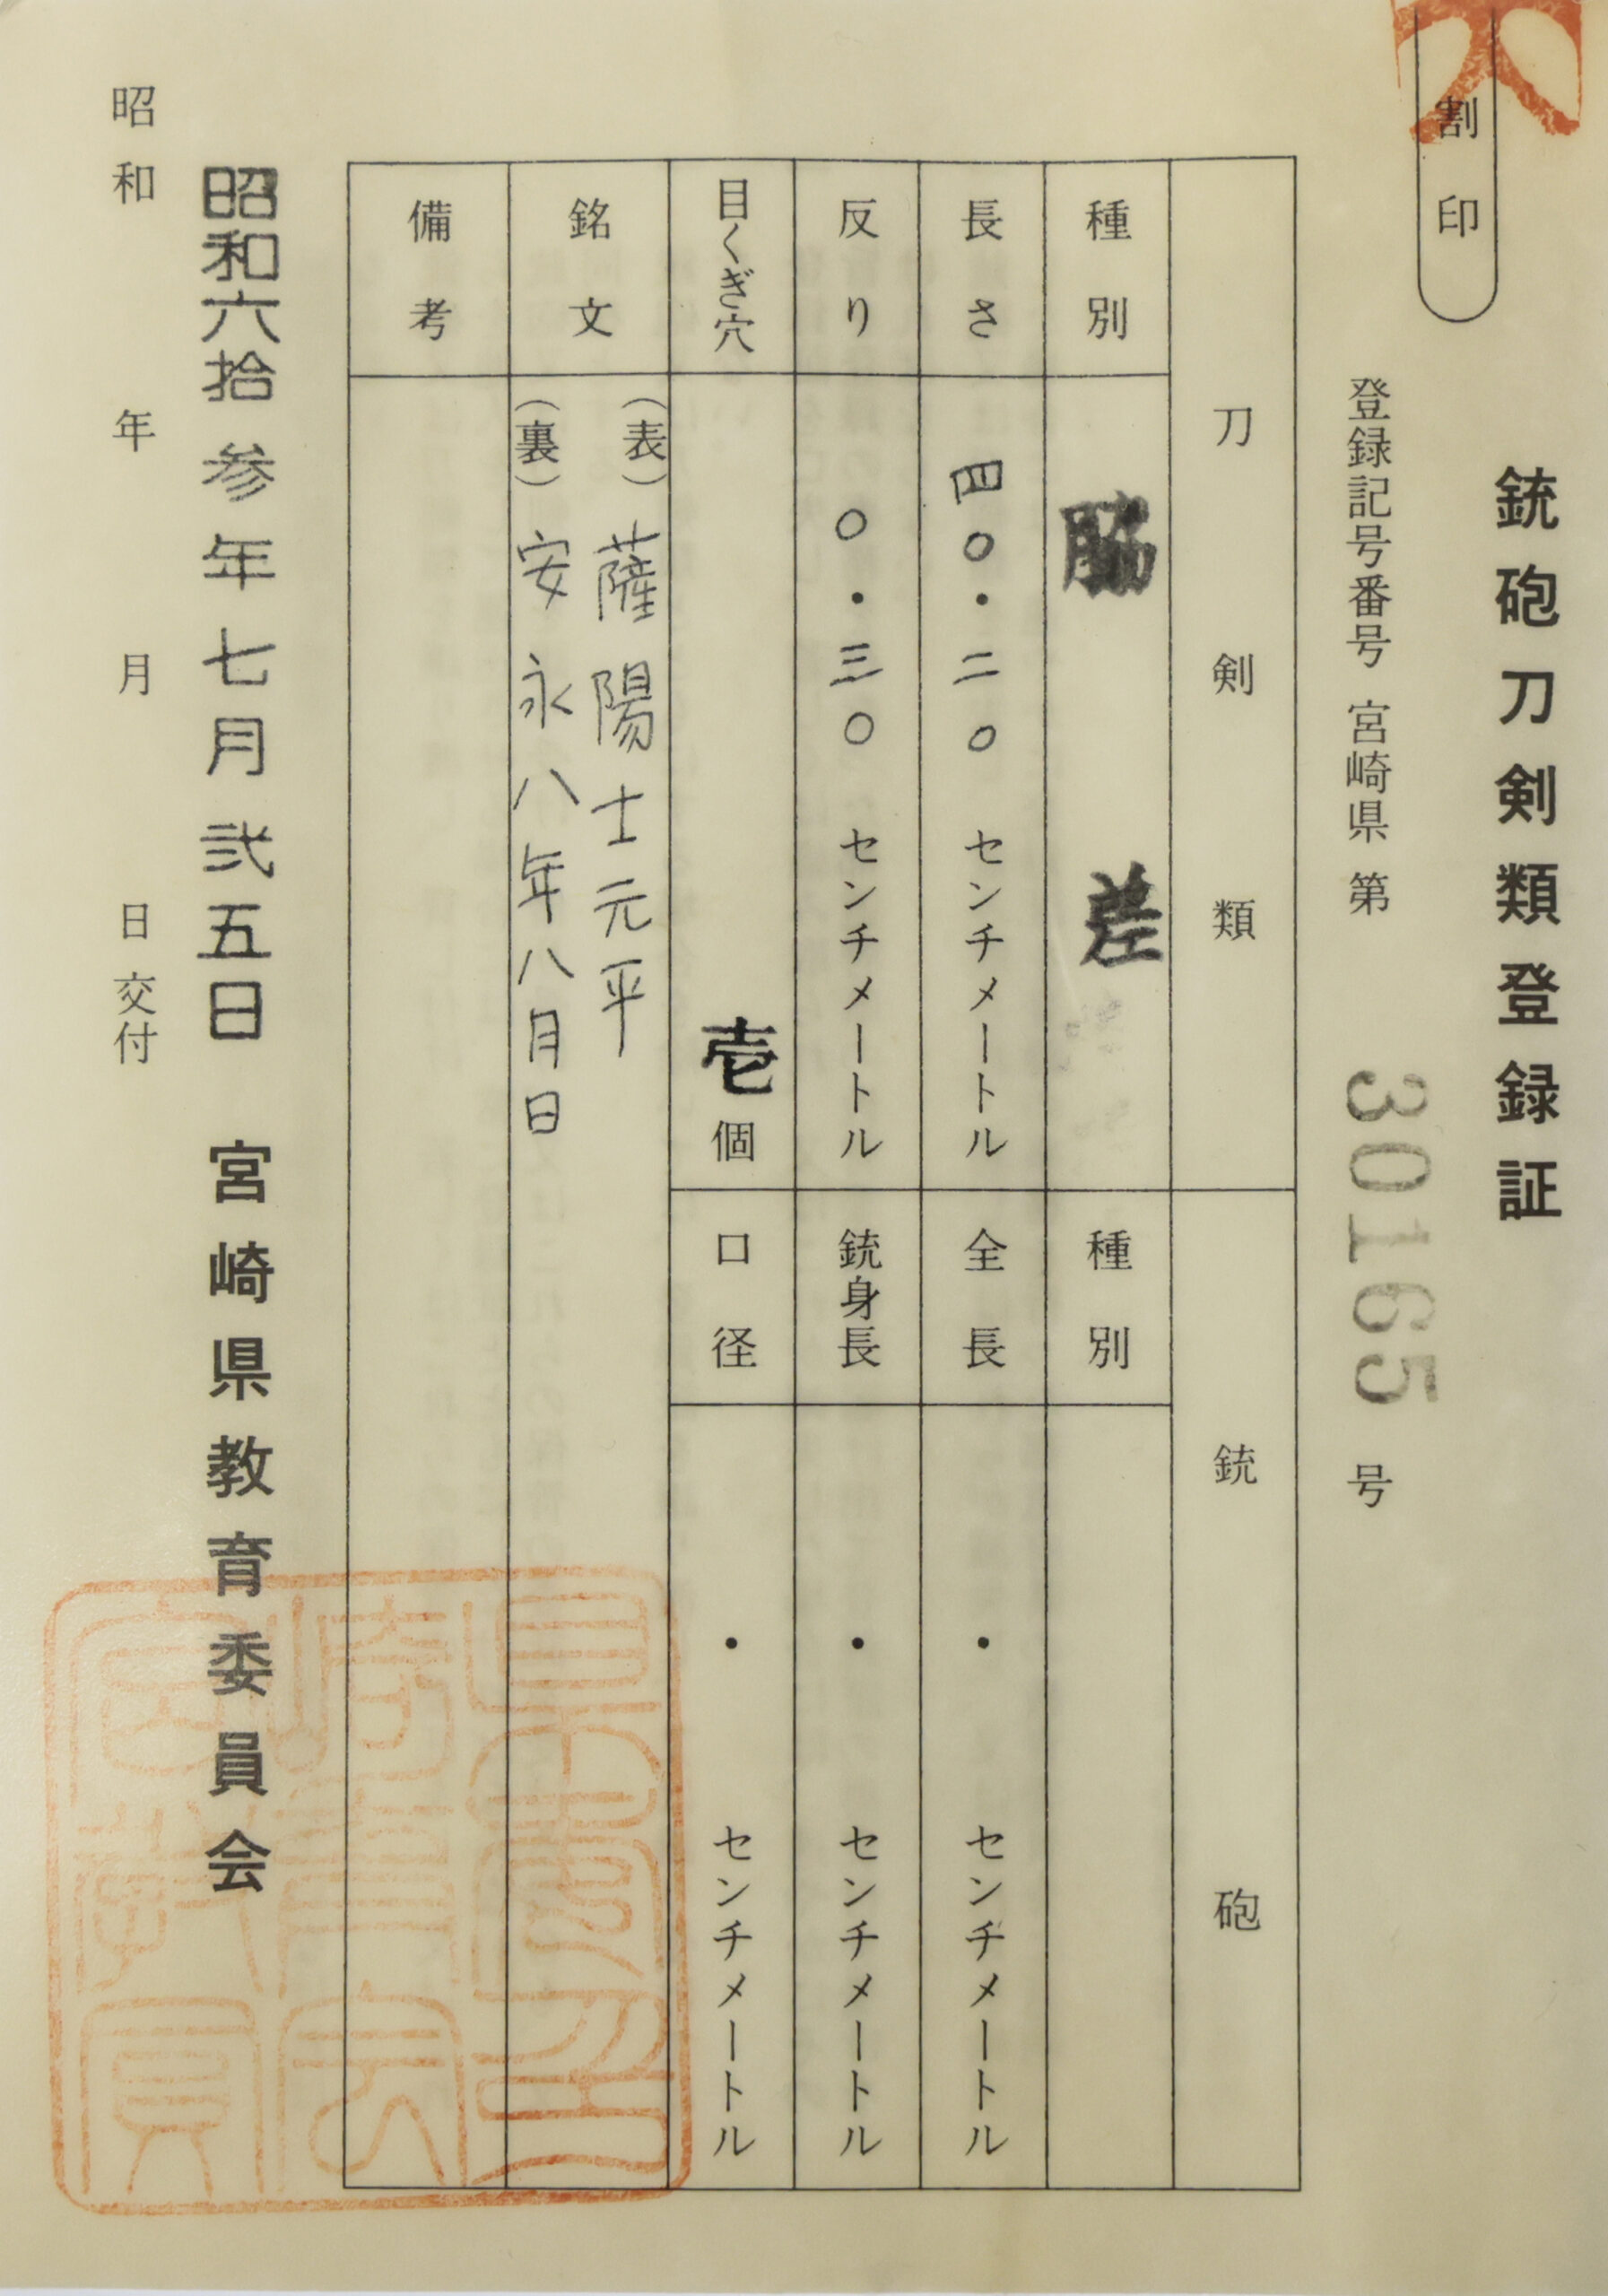 割印
銃砲刀剣類登録証
登録記号番号 宮崎県 第 30165 号
刀剣類
銃砲
種別 脇差
種別
長さ 四〇・二〇 センチメートル
全長 ・ センチメートル
反り 〇・三〇 センチメートル
銃身長 ・ センチメートル
目くぎ穴 壱個
口径 ・ センチメートル
銘文
(表)薩陽士元平
(裏)安永八年八月日
備考
昭和六拾参年七月弐五日 宮崎県教育委員会
昭和 年 月 日交付